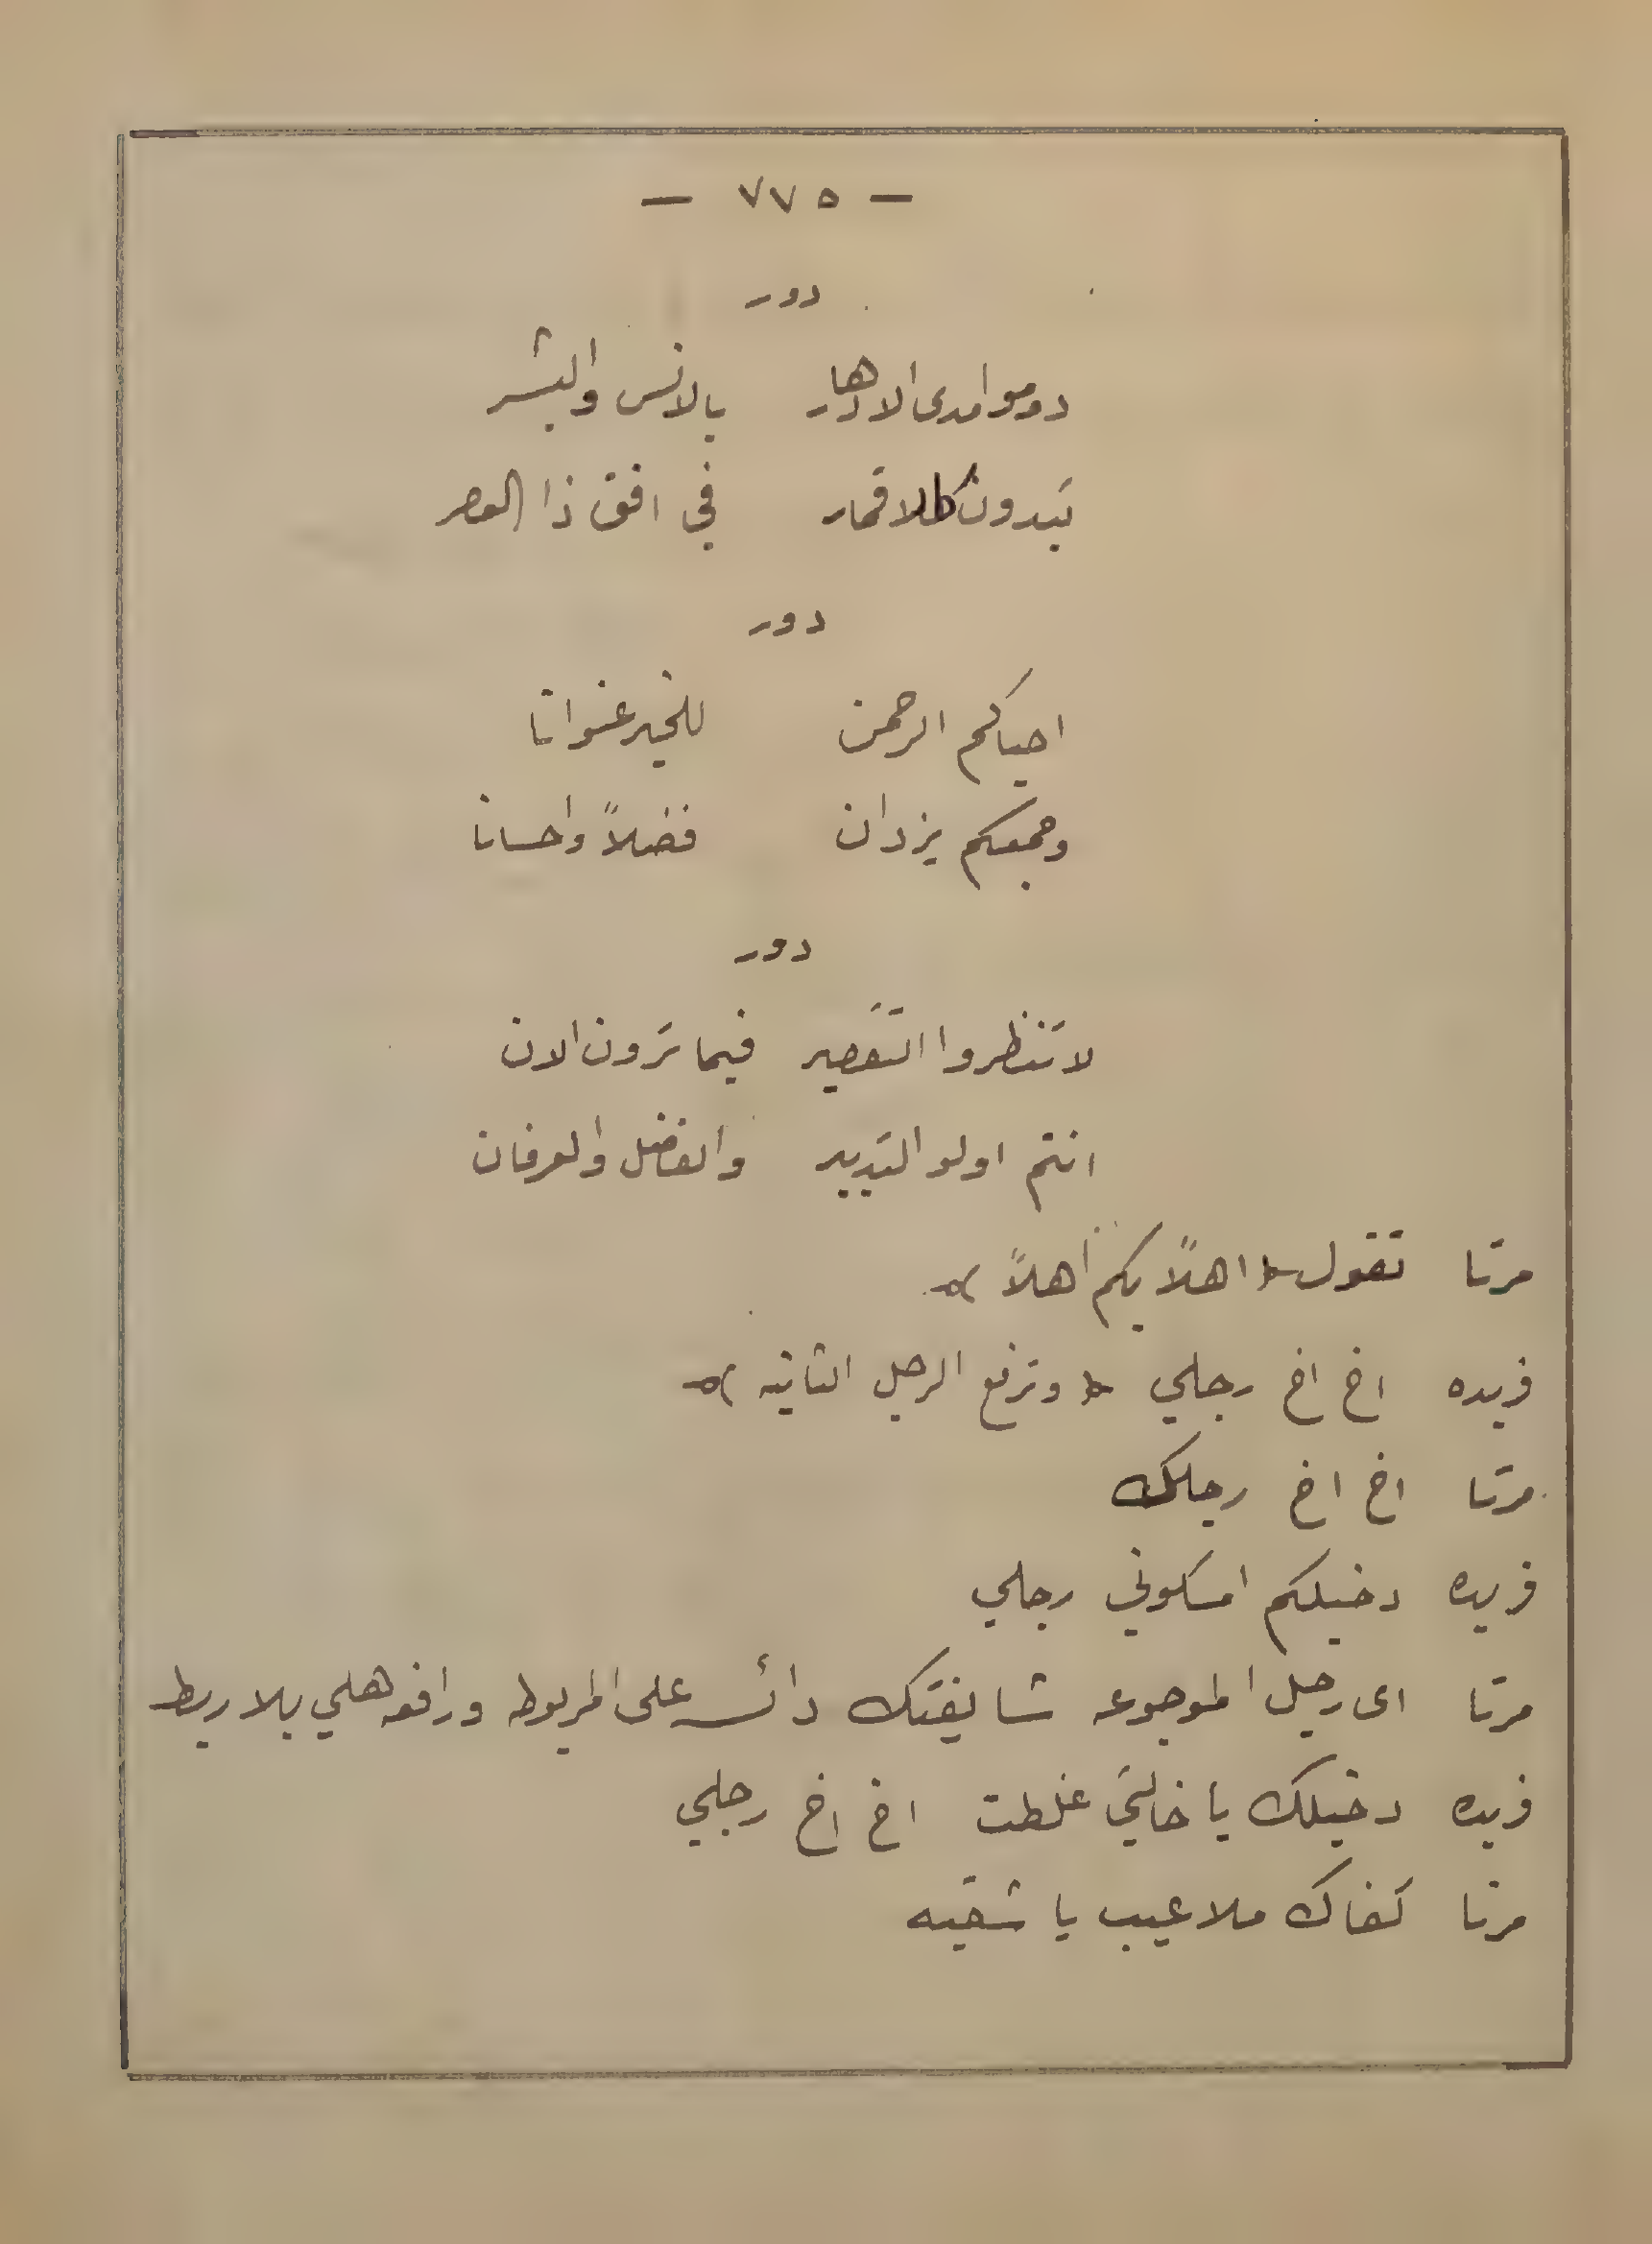 — ٧٧٥ —
دور
دوموا مدى الادهار بالانس والبشر
تبدون كالاقمار في افق ذا العصر
دور
احياكم الرحمن للخير عنوانا
وجمعكم يزدان فضلاً واحسانا
دور
لا تنظروا التقصير فيما ترون الان
انتم اولو التدبير والفضل والعرفان
مرتا تقول « اهلاً بكم أهلاً »
فريده اخ اخ رجلي « وترفع الرجل الثانيه »
مرتا اخ اخ رجلك
فريده دخيلكم امسكوني رجلي
مرتا اى رجل الموجوعه شايفتك دائسه على المربوطه ورافعه هلي بلا ربط
فريده دخيلك يا خالتي غلطت اخ اخ رجلي
مرتا كفاك ملاعيب يا شقيه